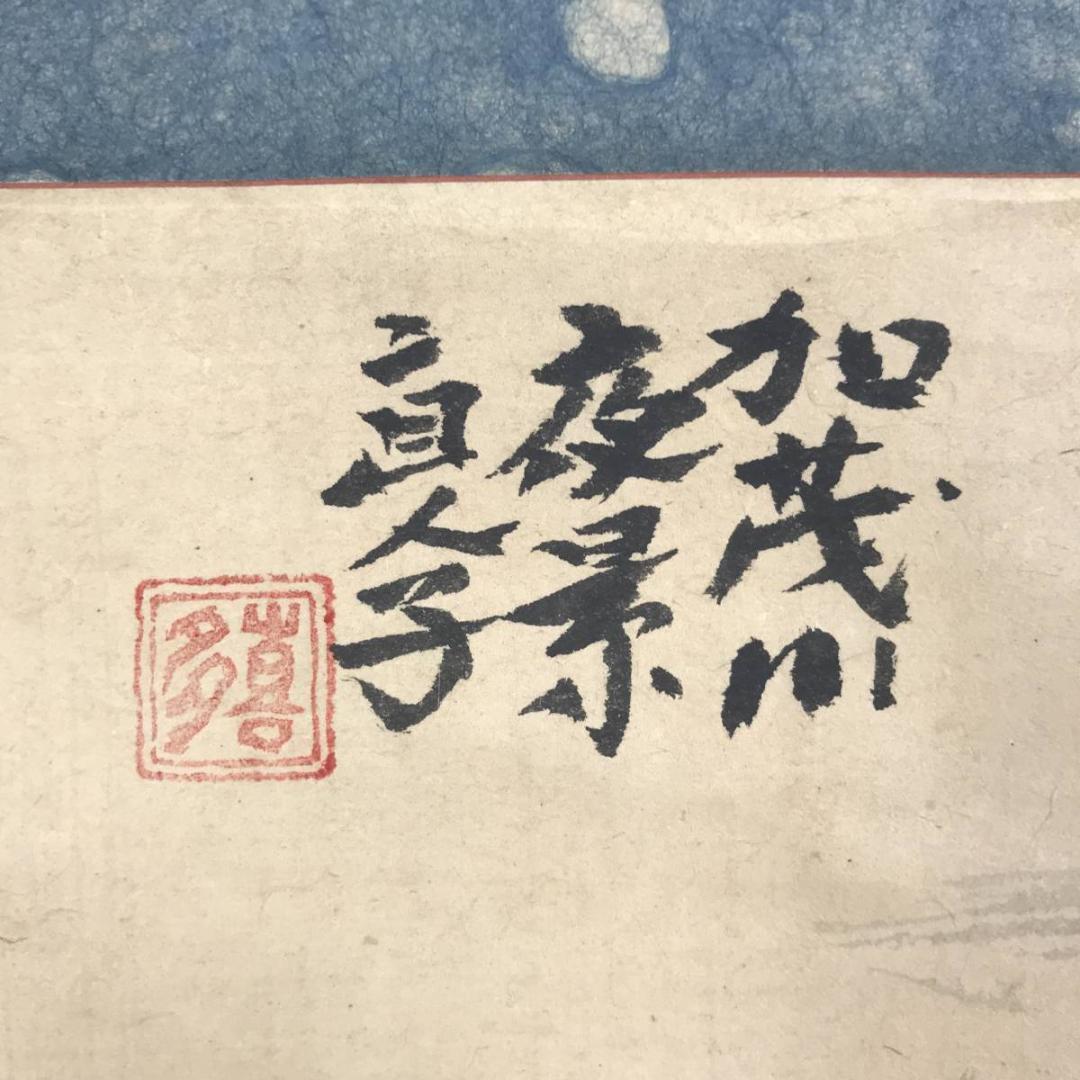 加茂川
夜景
人子
喜多